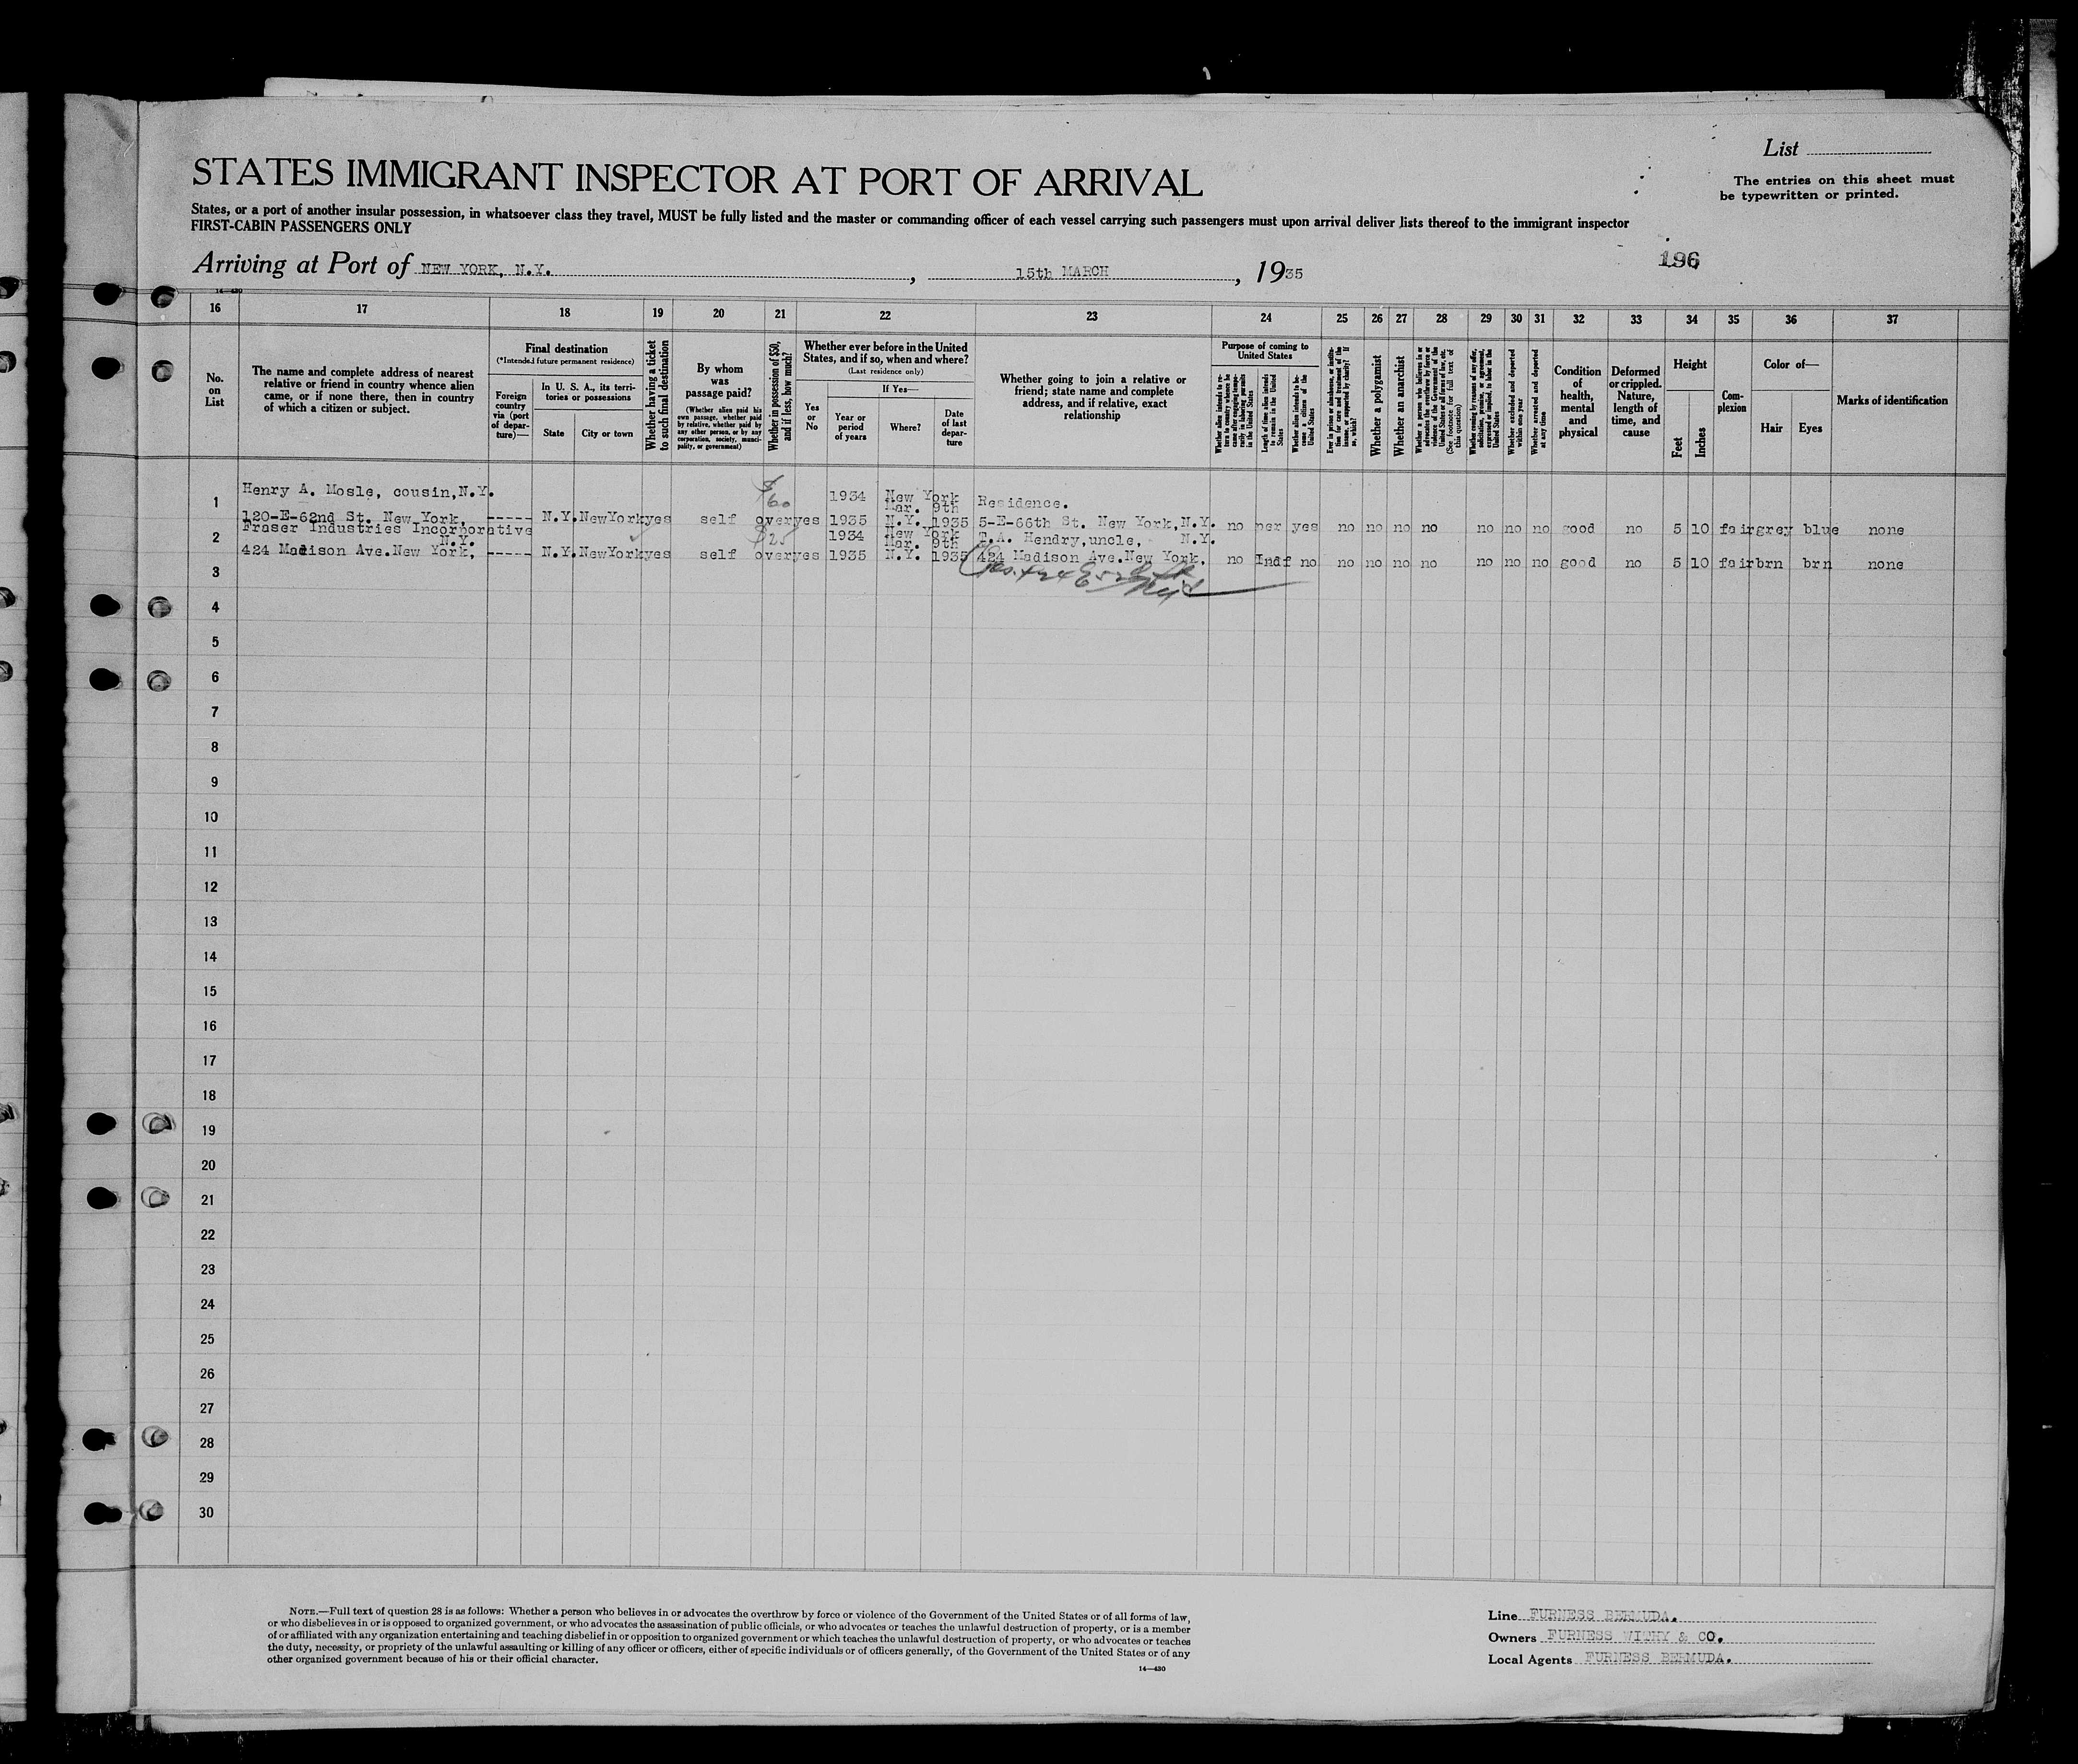 List
The entries on this sheet must
be typewritten or printed.
STATES IMMIGRANT INSPECTOR AT PORT OF ARRIVAL
States, or a port of another insular possession, in whatsoever class they travel, MUST be fully listed and the master or commanding officer of each vessel carrying such passengers must upon arrival deliver lists thereof to the immigrant inspector
FIRST-CABIN PASSENGERS ONLY
Arriving at Port of NEW YORK, N.Y. , 15th MARCH , 1935
196
14—430
16 17 18 19 20 21 22 23 24 25 26 27 28 29 30 31 32 33 34 35 36 37
No.
on
List
The name and complete address of nearest
relative or friend in country whence alien
came, or if none there, then in country
of which a citizen or subject.
Final destination
(*Intended future permanent residence)
Foreign
country
via (port
of depar-
ture)—
In U. S. A., its terri-
tories or possessions
State
City or town
Whether having a ticket
to such final destination
By whom
was
passage paid?
(Whether alien paid his
own passage, whether paid
by relative, whether paid by
any other person, or by any
corporation, society, munici-
pality, or government)
Whether in possession of $50,
and if less, how much?
Whether ever before in the United
States, and if so, when and where?
(Last residence only)
Yes
or
No
If Yes—
Year or
period
of years
Where?
Date
of last
depar-
ture
Whether going to join a relative or
friend; state name and complete
address, and if relative, exact
relationship
Purpose of coming to
United States
Whether alien intends to re-
turn to country whence he
came after engaging tempo-
rarily in laboring pursuits
in the United States
Length of time alien intends
to remain in the United
States
Whether alien intends to be-
come a citizen of the
United States
Ever in prison or almshouse, or institu-
tion for care and treatment of the
insane, or supported by charity? If
so, which?
Whether a polygamist
Whether an anarchist
Whether a person who believes in or
advocates the overthrow by force or
violence of the Government of the
United States or all forms of law, etc.
(See footnote for full text of
this question)
Whether coming by reasons of any offer,
solicitation, promise, or agreement,
expressed or implied, to labor in the
United States
Whether excluded and deported
within one year
Whether arrested and deported
at any time
Condition
of
health,
mental
and
physical
Deformed
or crippled.
Nature,
length of
time, and
cause
Height
Feet
Inches
Com-
plexion
Color of—
Hair
Eyes
Marks of identification
Henry A. Mosle, cousin,N.Y. $60 1934 New York Residence.
Mar. 9th
1 120-E-62nd St. New York, ----- N.Y. NewYork yes self over yes 1935 N.Y. 1935 5-E-66th St. New York,N.Y. no per yes no no no no no no no good no 5 10 fair grey blue none
Fraser Industries Incorporative $25 1934 New York T.A. Hendry,uncle, N.Y.
N.Y. Mar. 9th
2 424 Madison Ave.New York, ----- N.Y. NewYork yes self over yes 1935 N.Y. 1935 424 Madison Ave.New York, no Indf no no no no no no no no good no 5 10 fair brn brn none
3
4
5
6
7
8
9
10
11
12
13
14
15
16
17
18
19
20
21
22
23
24
25
26
27
28
29
30
NOTE.—Full text of question 28 is as follows: Whether a person who believes in or advocates the overthrow by force or violence of the Government of the United States or of all forms of law,
or who disbelieves in or is opposed to organized government, or who advocates the assassination of public officials, or who advocates or teaches the unlawful destruction of property, or is a member
of or affiliated with any organization entertaining and teaching disbelief in or opposition to organized government or which teaches the unlawful destruction of property, or who advocates or teaches
the duty, necessity, or propriety of the unlawful assaulting or killing of any officer or officers, either of specific individuals or of officers generally, of the Government of the United States or of any
other organized government because of his or their official character.
14—430
Line FURNESS BERMUDA.
Owners FURNESS WITHY & CO.
Local Agents FURNESS BERMUDA.